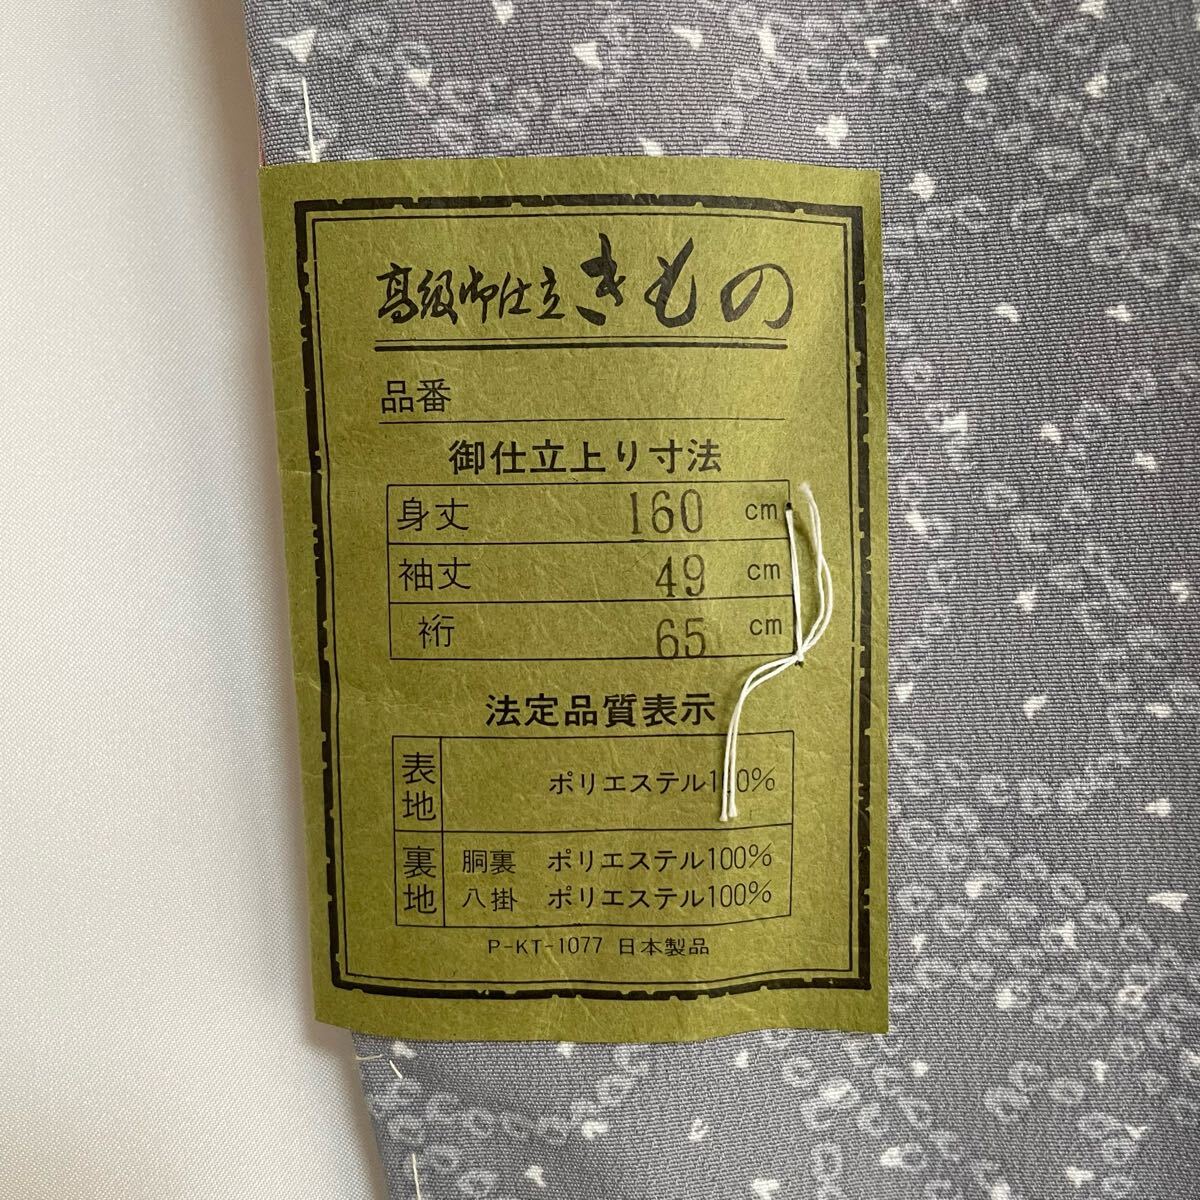 高級御仕立きもの
品番
御仕立上り寸法
身丈 160 cm
袖丈 49 cm
裄 65 cm
法定品質表示
表地 ポリエステル100%
裏地 胴裏 ポリエステル100%
八掛 ポリエステル100%
P-KT-1077 日本製品